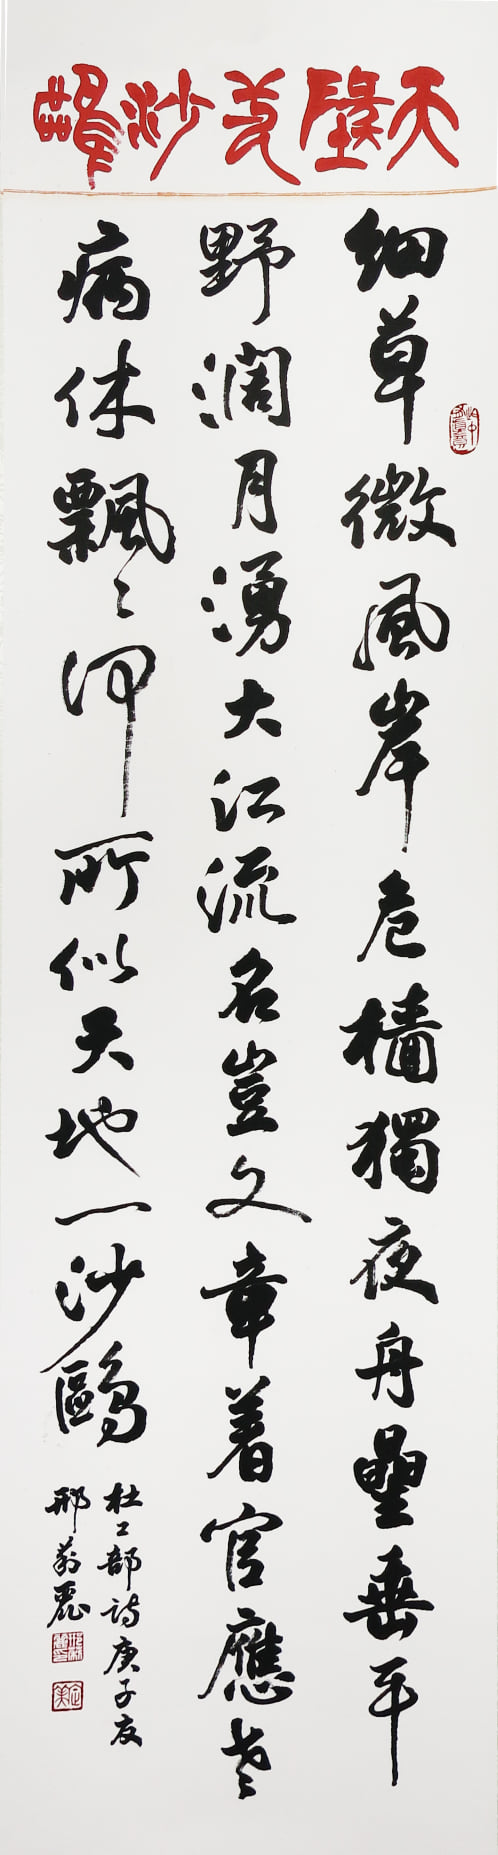 天地一沙鷗
細草微風岸危檣獨夜舟星垂平
野濶月湧大江流名豈文章着官應老
病休飄々何所似天地一沙鷗
杜工部詩庚子夏
邢麗